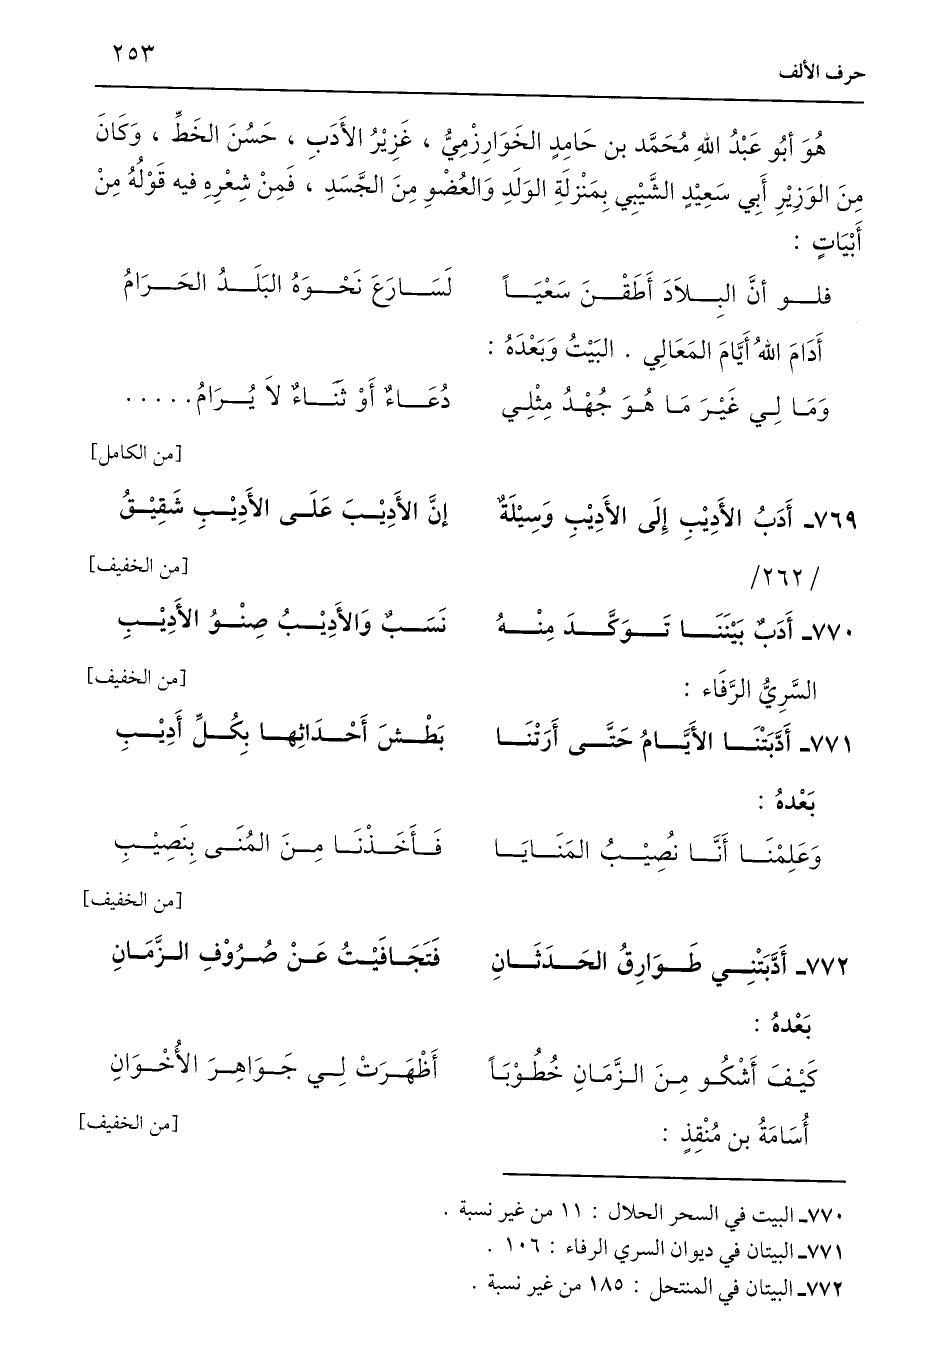 حرف الألف ٢٥٣
هُوَ أبُو عَبْدُ اللهِ مُحَمَّد بن حَامِدٍ الخَوَارِزْمِيُّ ، غَزِيْرُ الأَدَبِ ، حَسُنَ الخَطِّ ، وَكَانَ
مِنَ الوَزِيْرِ أَبِي سَعِيْدٍ الشَّيْبِي بِمَنْزِلَةِ الوَلَدِ وَالعُضْوِ مِنَ الجَّسَدِ ، فَمِنْ شِعْرِهِ فيه قَوْلُهُ مِنْ
أَبْيَاتٍ :
فلـو أنَّ البِـلاَدَ أَطَقْـنَ سَعْيَـاً لَسَـارَعَ نَحْـوَهُ البَلَـدُ الحَـرَامُ
أَدَامَ اللهُ أَيَّامَ المَعَالِي . البَيْتُ وَبَعْدَهُ :
وَمَـا لِـي غَيْـرَ مَـا هُـوَ جُهْـدُ مِثْلِـي دُعَـاءٌ أَوْ ثَنَـاءٌ لاَ يُـرَامُ.....
[من الكامل]
٧٦٩ـ أَدَبُ الأَدِيْبِ إِلَى الأَدِيْبِ وَسِيْلَةٌ إنَّ الأَدِيْـبَ عَلَـى الأَدِيْـبِ شَقِيْـقُ
/٢٦٢/ [من الخفيف]
٧٧٠ـ أَدَبٌ بَيْنَنَـا تَـوَكَّـدَ مِنْـهُ نَسَـبٌ وَالأَدِيْـبُ صِنْـوُ الأَدِيْـبِ
السَّرِيُّ الرَّفَاء : [من الخفيف]
٧٧١ـ أَدَّبَتْنَـا الأَيَّـامُ حَتَّـى أَرَتْنَـا بَطْـشَ أَحْـدَاثِهـا بِكُـلِّ أَدِيْـبِ
بَعْدهُ :
وَعَلِمْنَـا أَنَّـا نُصِيْـبُ المَنَـايَـا فَـأَخَـذْنَـا مِـنَ المُنَـى بِنَصِيْـبِ
[من الخفيف]
٧٧٢ـ أَدَّبَتْنِـي طَـوَارِقُ الحَـدَثَـانِ فَتَجَـافَيْـتُ عَـنْ صُـرُوْفِ الـزَّمَـانِ
بَعْدهُ :
كَيْـفَ أَشْكُـو مِـنَ الـزَّمَـانِ خُطُـوْبَـاً أَظْهَـرَتْ لِـي جَـوَاهِـرَ الأُخْـوَانِ
أُسَامَةُ بن مُنْقِذٍ : [من الخفيف]
٧٧٠ـ البيت في السحر الحلال : ١١ من غير نسبة .
٧٧١ـ البيتان في ديوان السري الرفاء : ١٠٦ .
٧٧٢ـ البيتان في المنتحل : ١٨٥ من غير نسبة .